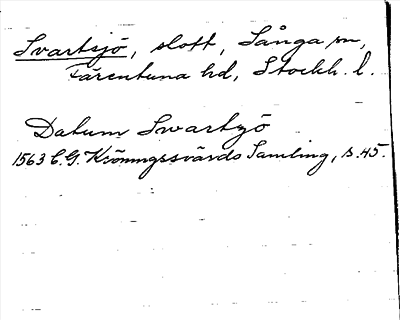 Svartsjö, slott, Sånga sn,
Färentuna hd, Stockh. l.
Datum Swartzö
1563 C.G. Kröningssvärds Samling, s. 45.